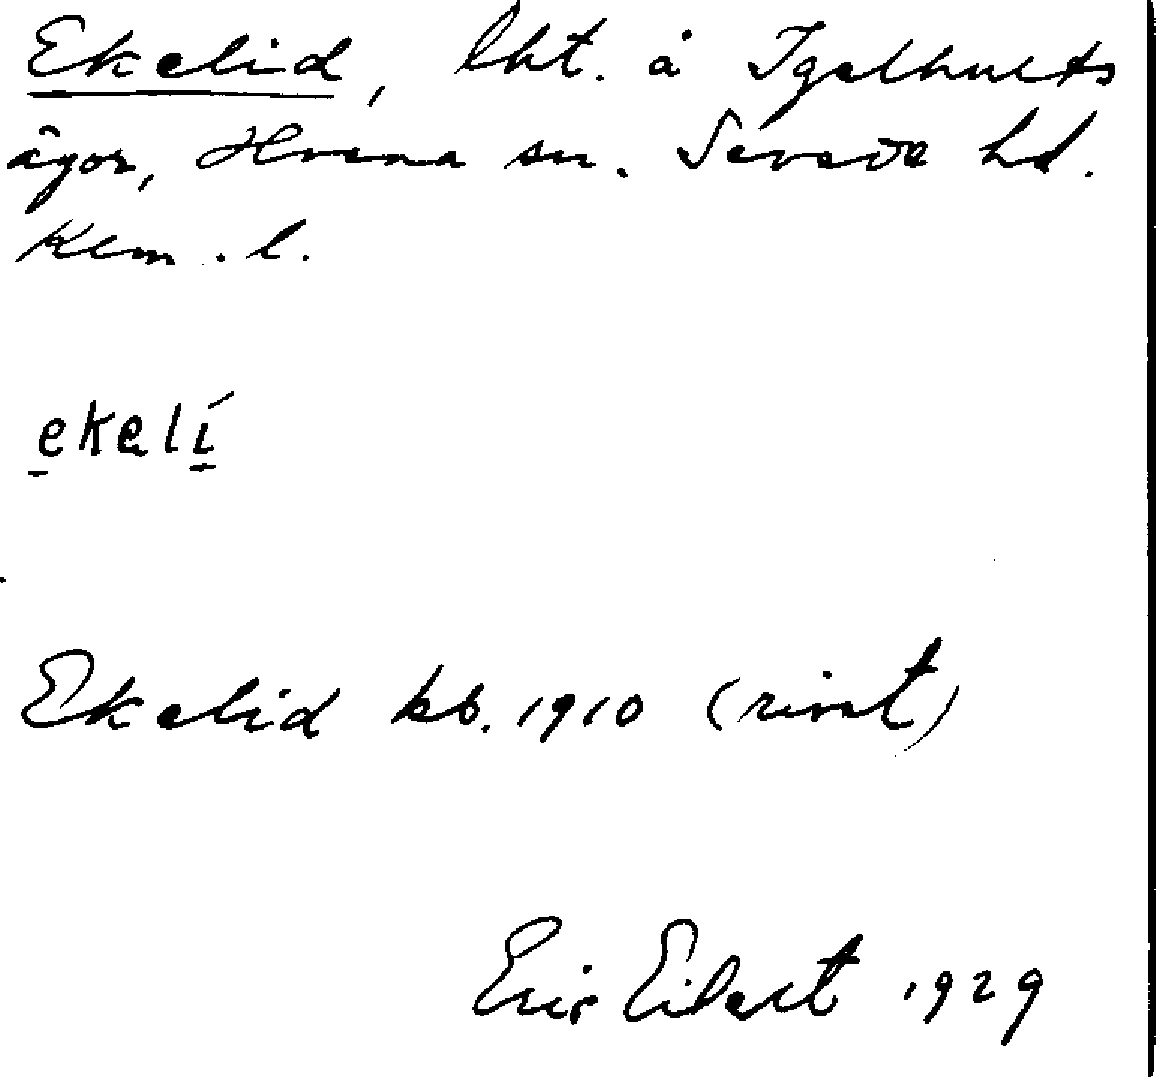 Ekelid, lht. å Igelhults
ägor, Hvena sn. Sevede hd.
Klm. l.
ekalí
Ekelid kb. 1910 (rivet)
Eric Eilert 1929